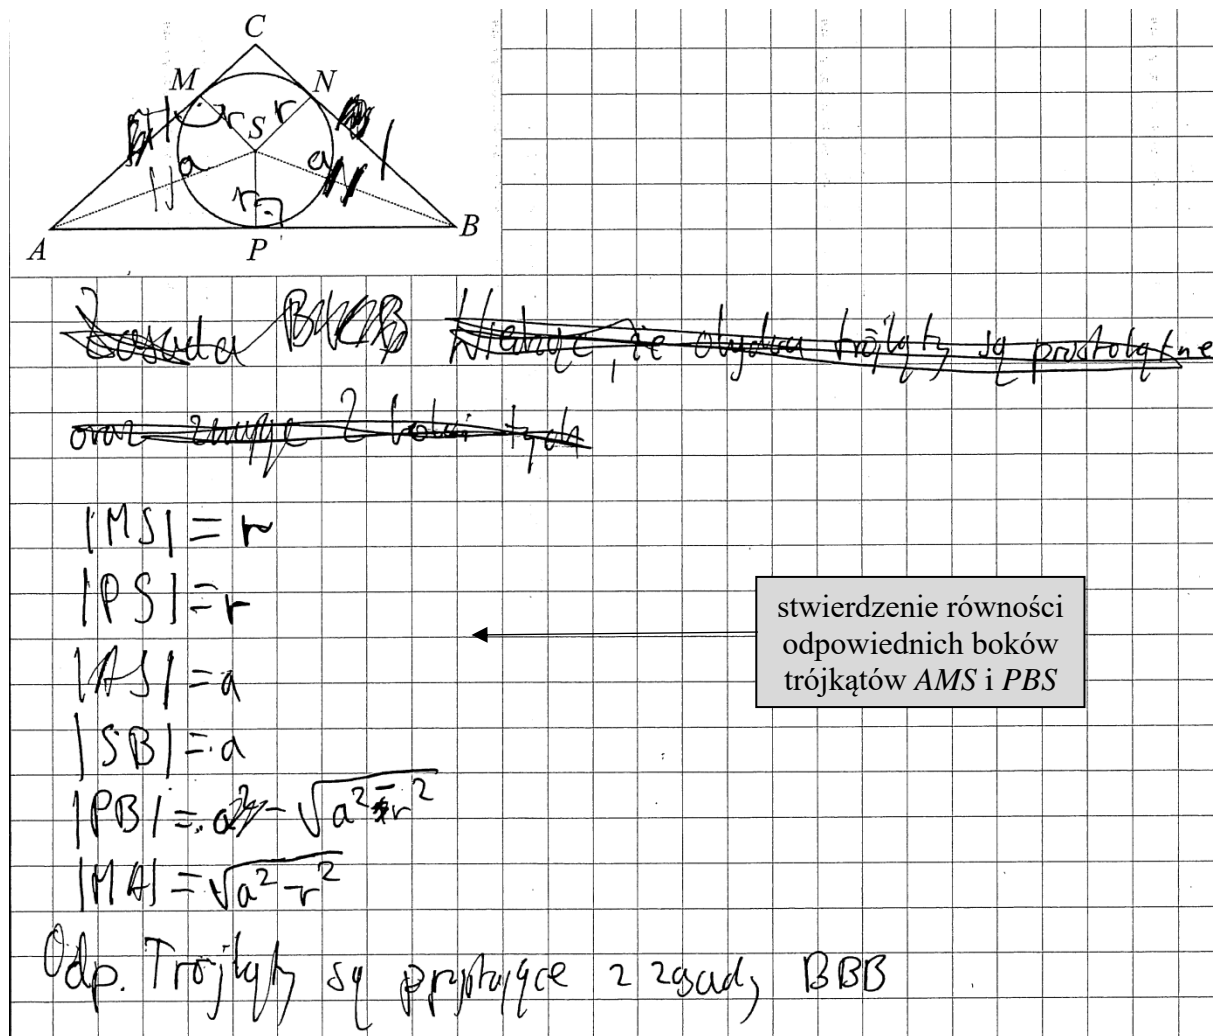 C
M N
r r
S
a a
r
A P B
Zasada Wiedząc, że obydwa trójkąty są prostokątne
oraz znając 2 boki tych
|MS| = r
|PS| = r
|AS| = a
|SB| = a
|PB| = √a² - r²
|MA| = √a² - r²
stwierdzenie równości
odpowiednich boków
trójkątów AMS i PBS
Odp. Trójkąty są przystające z zasady BBB